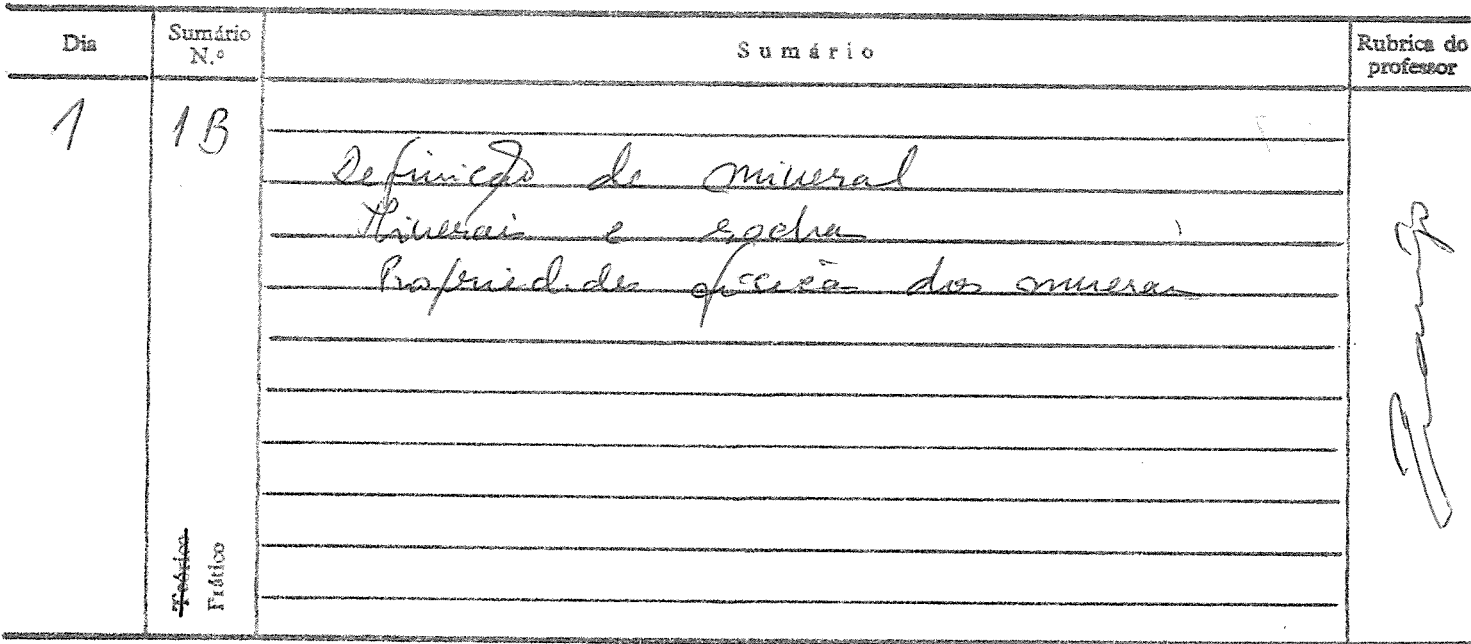 Dia Sumário N.º Sumário Rubrica do professor
1 1B
Definição de mineral
Minerais e rochas
Propriedades físicas dos minerais
Teórico
Prático